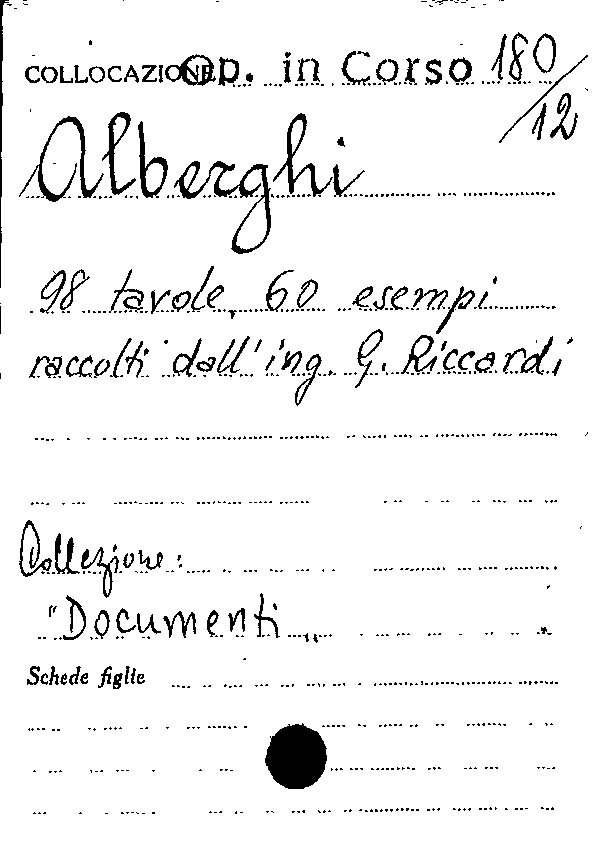 COLLOCAZIONE Op. in Corso 180/12
Alberghi
98 tavole, 60 esempi
raccolti dall'ing. G. Riccardi
Collezione:
"Documenti„
Schede figlie